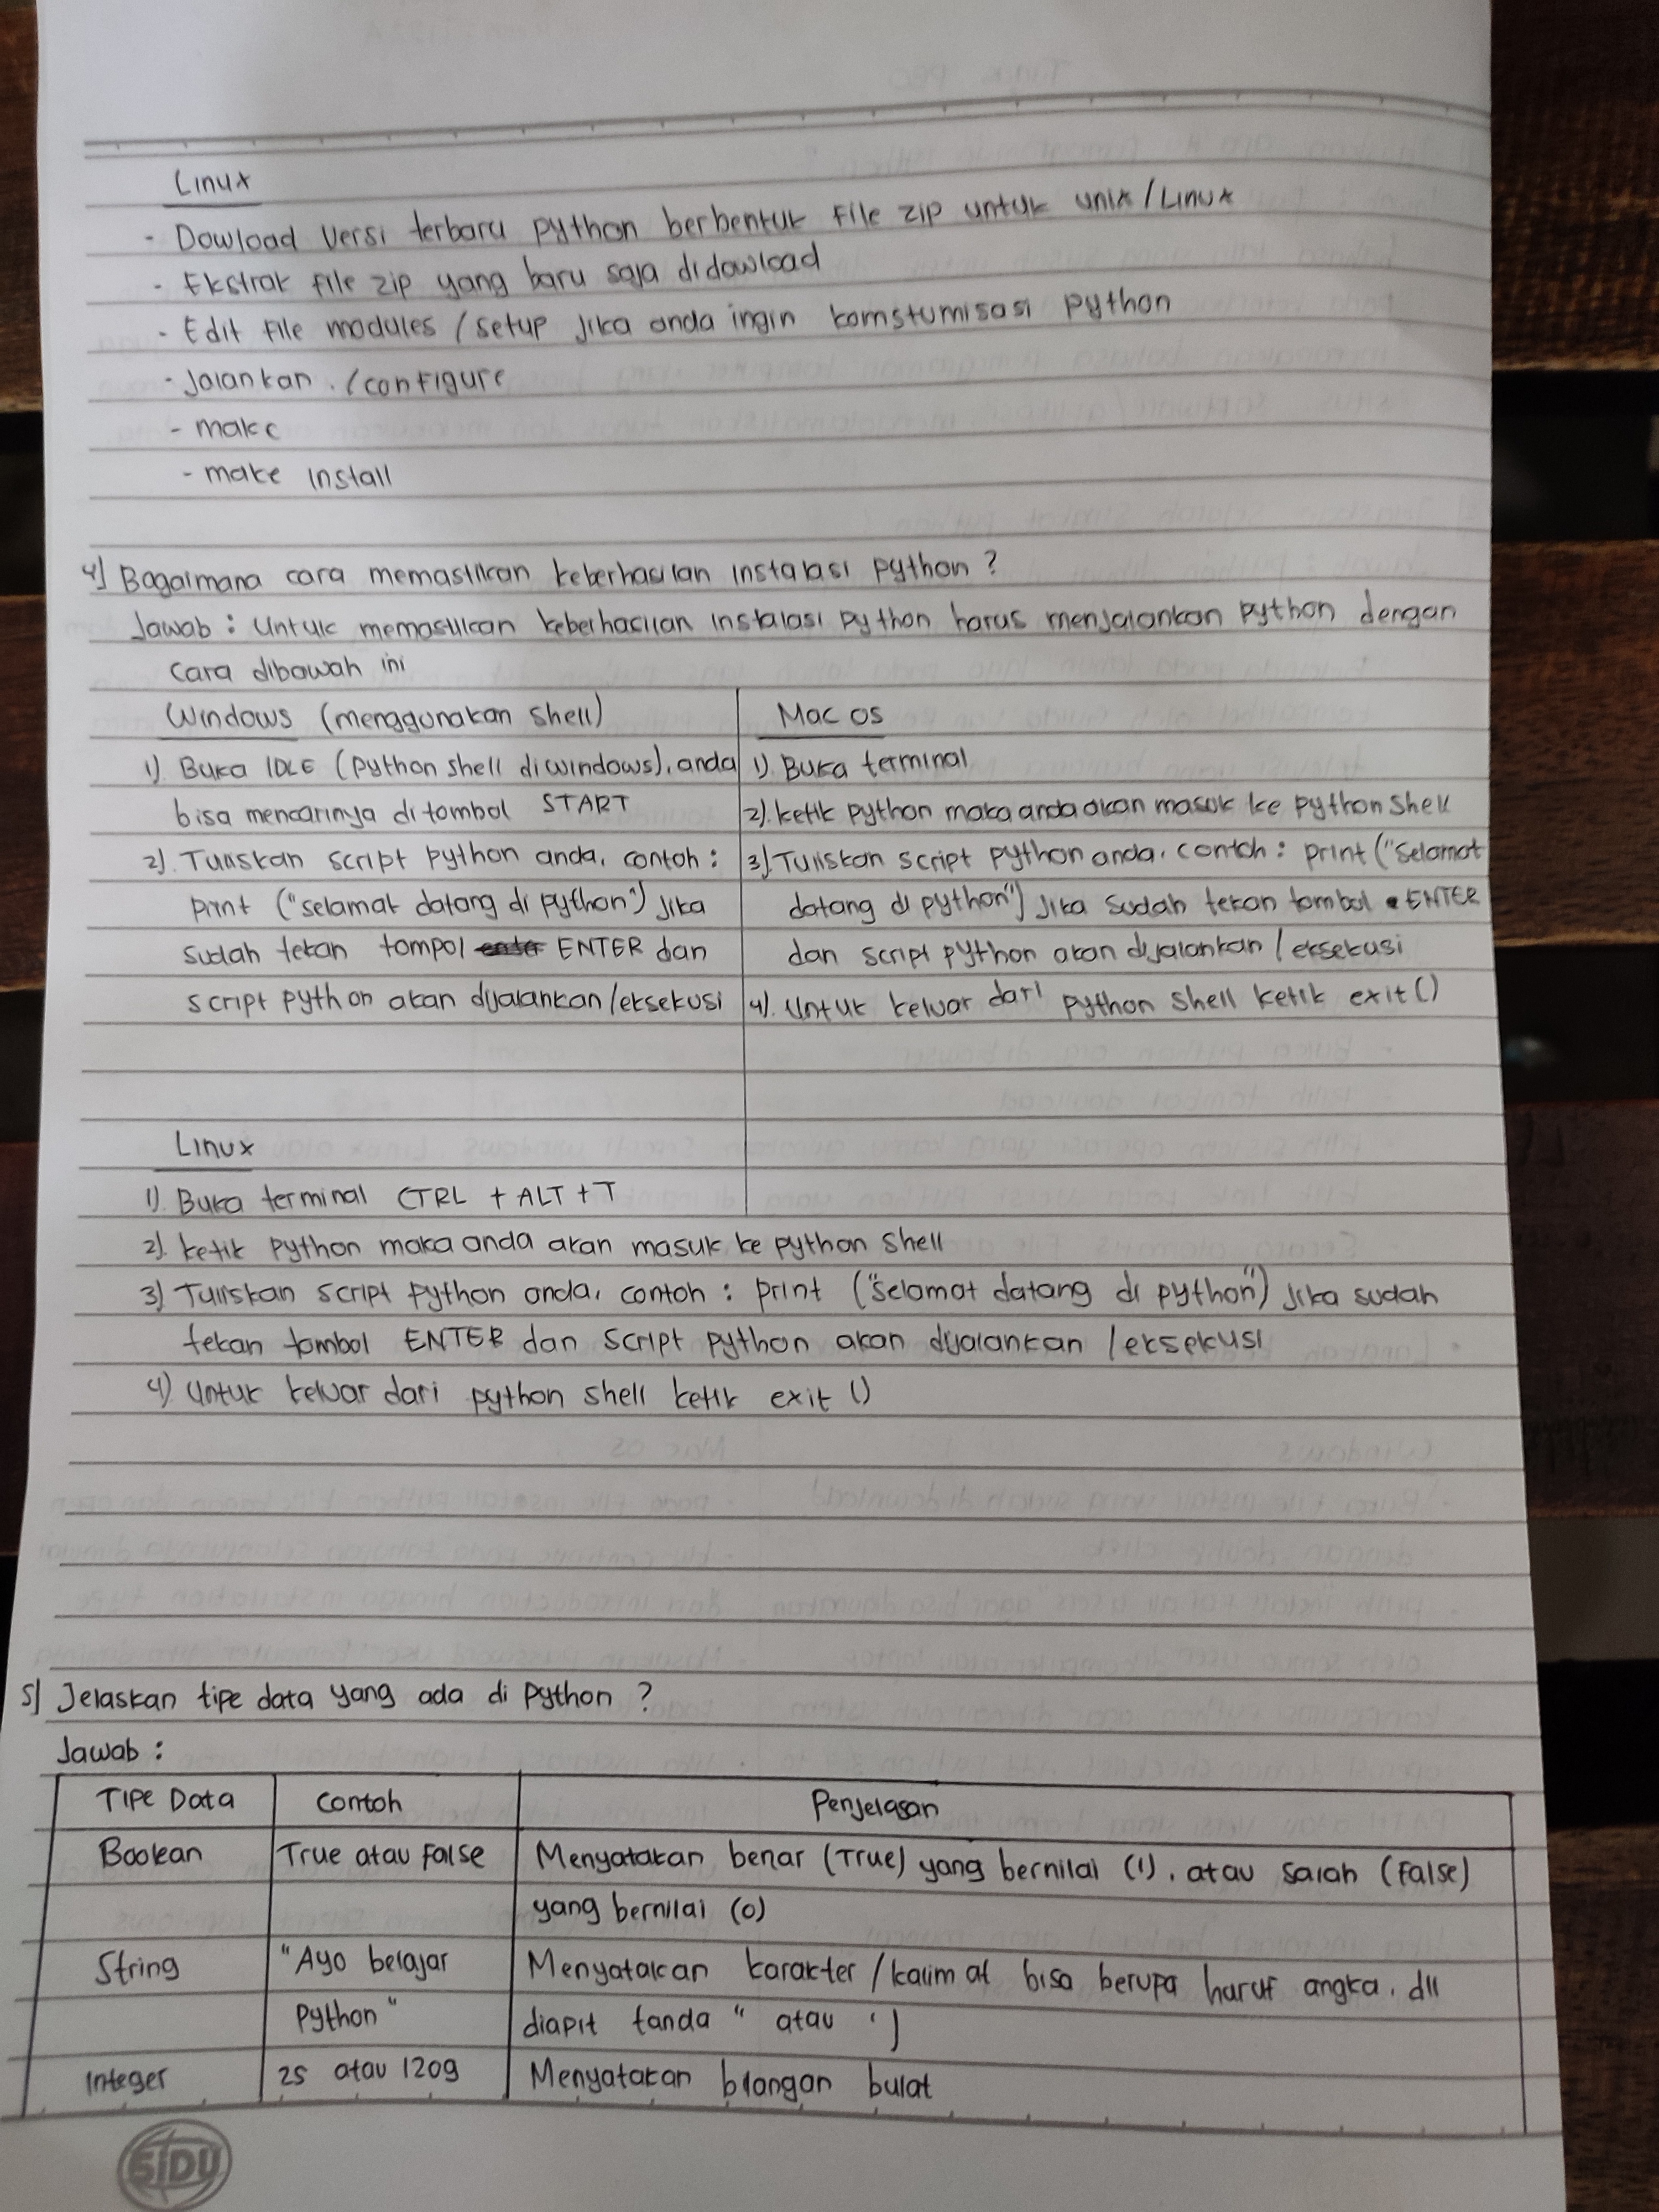 Linux
- Dowload versi terbaru python berbentuk file zip untuk unix / Linux
- Ekstrak file zip yang baru saja didowload
- Edit file modules / setup jika anda ingin komstumisasi python
- Jalankan ./configure
- make
- make install
4) Bagaimana cara memastikan keberhasilan instalasi python ?
Jawab : Untuk memastikan keberhasilan instalasi python harus menjalankan python dengan
cara dibawah ini
Windows (menggunakan shell)
1). Buka IDLE (python shell diwindows), anda
bisa mencarinya di tombol START
2). Tuliskan script python anda, contoh :
print ("selamat datang di python") jika
sudah tekan tompol ENTER dan
script python akan dijalankan /eksekusi
Mac os
1). Buka terminal
2). ketik python maka anda akan masuk ke python shell
3). Tuliskan script python anda, contoh : print ("selamat
datang di python") jika sudah tekan tombol ENTER
dan script python akan dijalankan / eksekusi
4). Untuk keluar dari python shell ketik exit ()
Linux
1). Buka terminal CTRL + ALT + T
2). ketik python maka anda akan masuk ke python shell
3) Tuliskan script python anda, contoh : print ("selamat datang di python") jika sudah
tekan tombol ENTER dan script python akan dijalankan /eksekusi
4) Untuk keluar dari python shell ketik exit ()
5) Jelaskan tipe data yang ada di python ?
Jawab :
Tipe Data Contoh Penjelasan
Boolean True atau False Menyatakan benar (True) yang bernilai (1), atau salah (False)
yang bernilai (0)
String "Ayo belajar Menyatakan karakter / kalimat bisa berupa huruf angka, dll
Python" diapit tanda " atau ')
Integer 25 atau 1209 Menyatakan bilangan bulat
SIDU